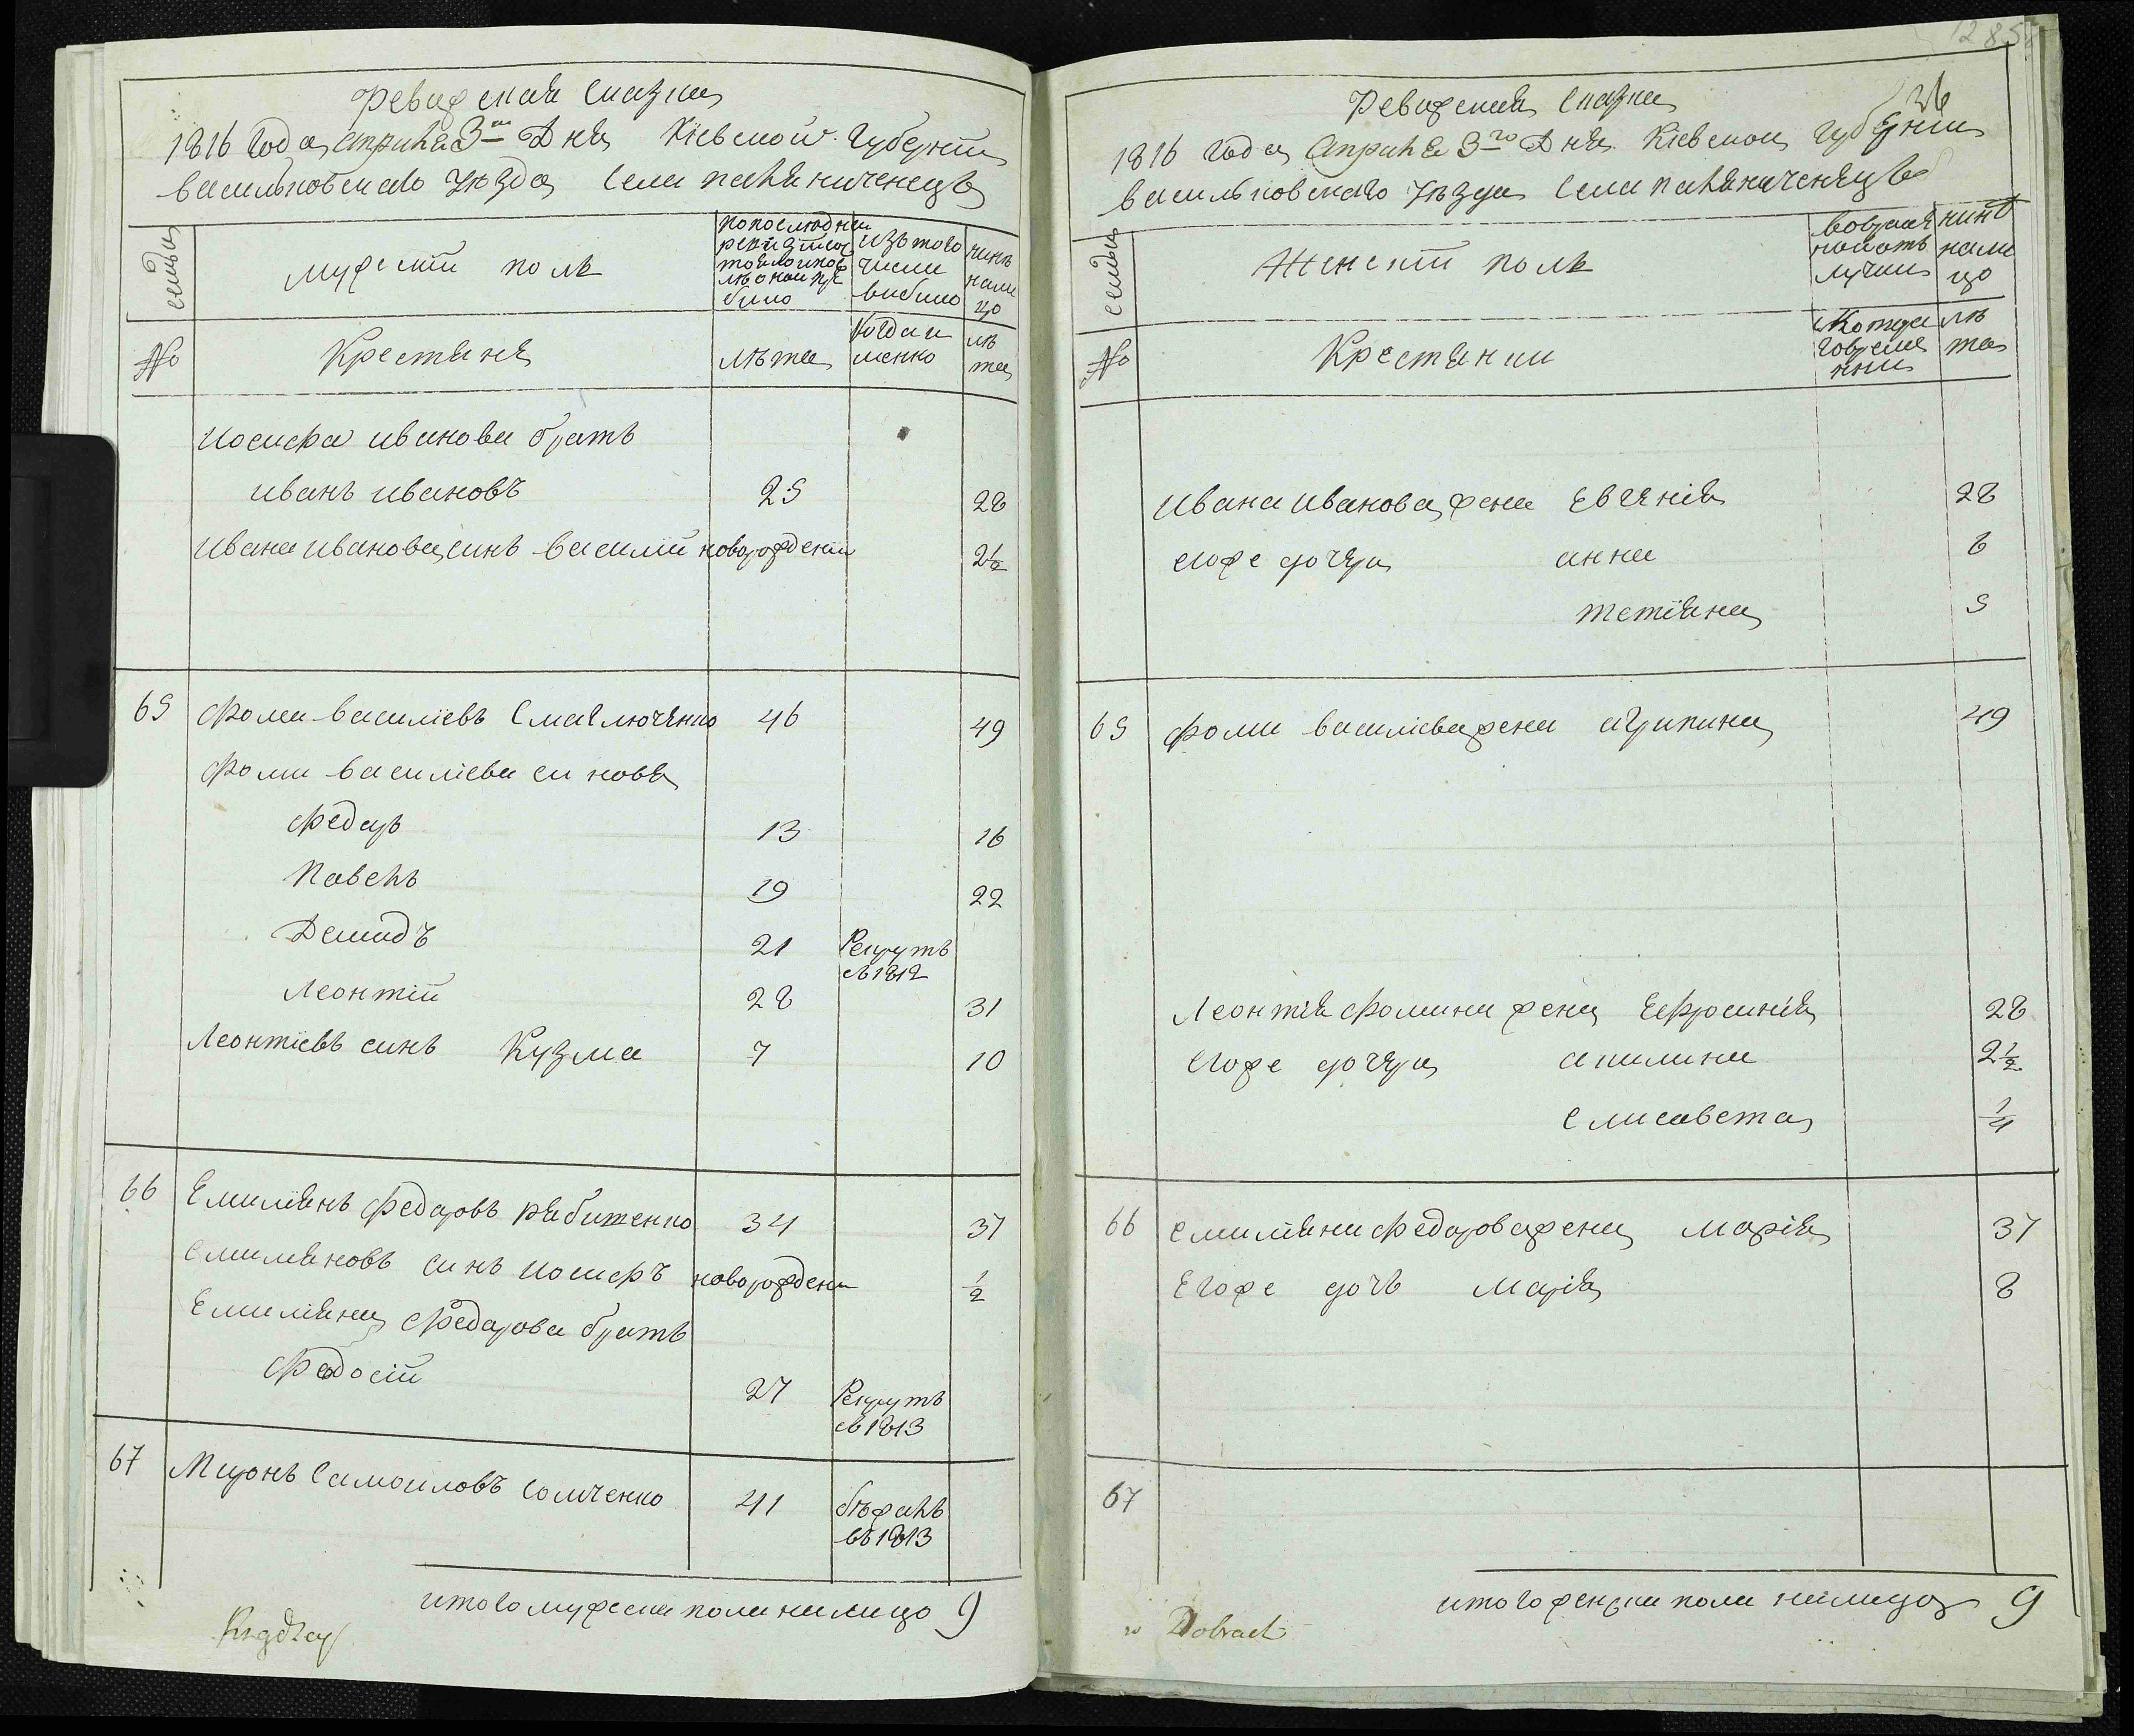 Ревизская сказка
1816 года априля 3го Дня Кіевской Губерніи
васильковского уезда Села палянеченецъ
семьи
мужескій полъ
По последней ревизіи состояло и после оной прибыло
изъ того числа выбыло
нине налицо
№
Крестяня
лета
Когда именно
лета
Иосифа иванова братъ
иванъ ивановъ 25 28
ивана иванова синъ василій новорожденій 2½
65 Фома василіевъ Смаглюченко 46 49
Фоми василіева синовя
Федоръ 13 16
Павелъ 19 22
Демидъ 21 Рекрутъ въ 1812
Леонтій 28 31
Леонтіевъ синъ Кузма 7 10
66 Емиліянъ Федоровъ рябишенко 34 37
Емиляновъ синъ иосифъ новорожден ½
Емиліяна Федорова братъ
Федосій 27 Рекрутъ въ 1813
67 Миронъ Самоиловъ Сомченко 41 бежалъ въ 1813
итого мужеска пола налицо 9
1285
36
Ревизская Сказка
1816 года Априля 3го Дня Кіевской губерніи
васильковского уезда Села паляниченецъ
семьи
Женскій полъ
во временной отлучки
нине налицо
№
Крестянки
лета
Ивана Иванова жена Евгенія 28
егоже дочери анна 8
тетіяна 5
65 Фоми василіева жена агрипина 49
Леонтія Фомина жена Ефросинія 28
егоже дочери акилина 2½
елисавета ¼
66 Емиліяна Федорова жена Марія 37
Егоже дочъ Марія 8
67
итого женска пола налицо 9
Dobraet